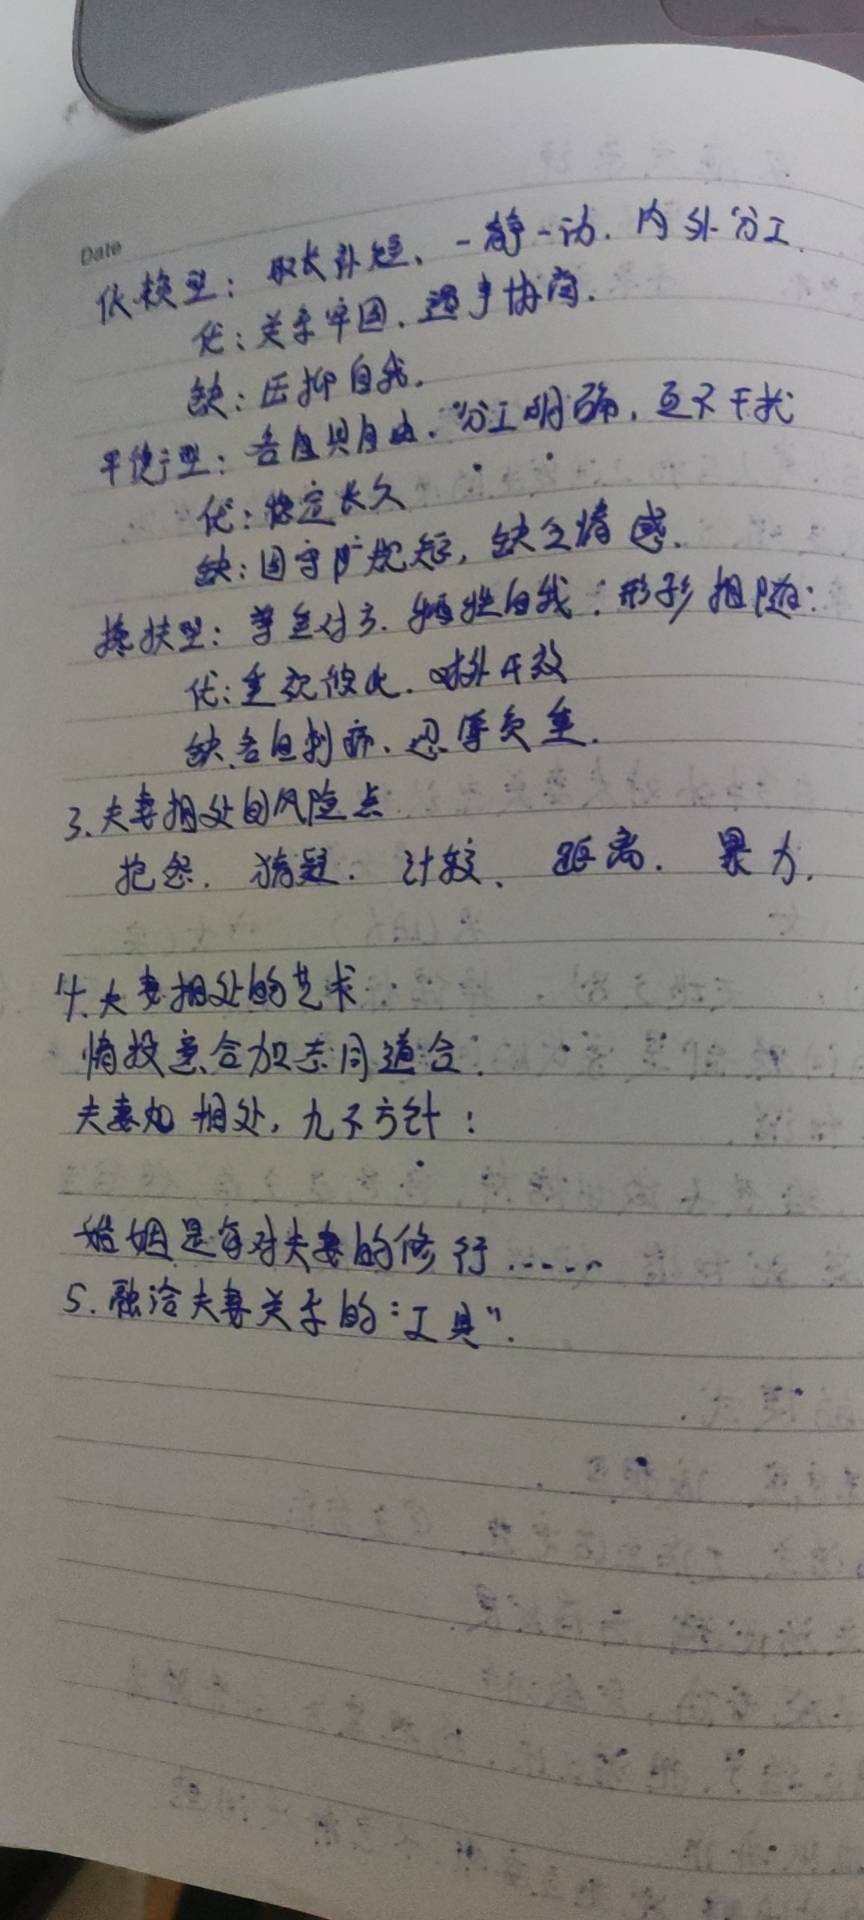 Date
依赖型：取长补短、一静一动．内外分工．
优：关系牢固．遇事协商．
缺：压抑自我．
平衡型：各自具自由．分工明确，互不干扰
优：稳定长久
缺：固守 规矩，缺乏情感．
搀扶型：尊重对方．牺牲自我；形影相随：
优：重视彼此．
缺 各自 ．忍辱负重．
3.夫妻相处的风险点
抱怨．猜疑．计较、距离．暴力．
4.夫妻相处的艺术
情投意合加志同道合．
夫妻 相处，九不方针：
婚姻是每对夫妻的修行……
5.融洽夫妻关系的“工具”．